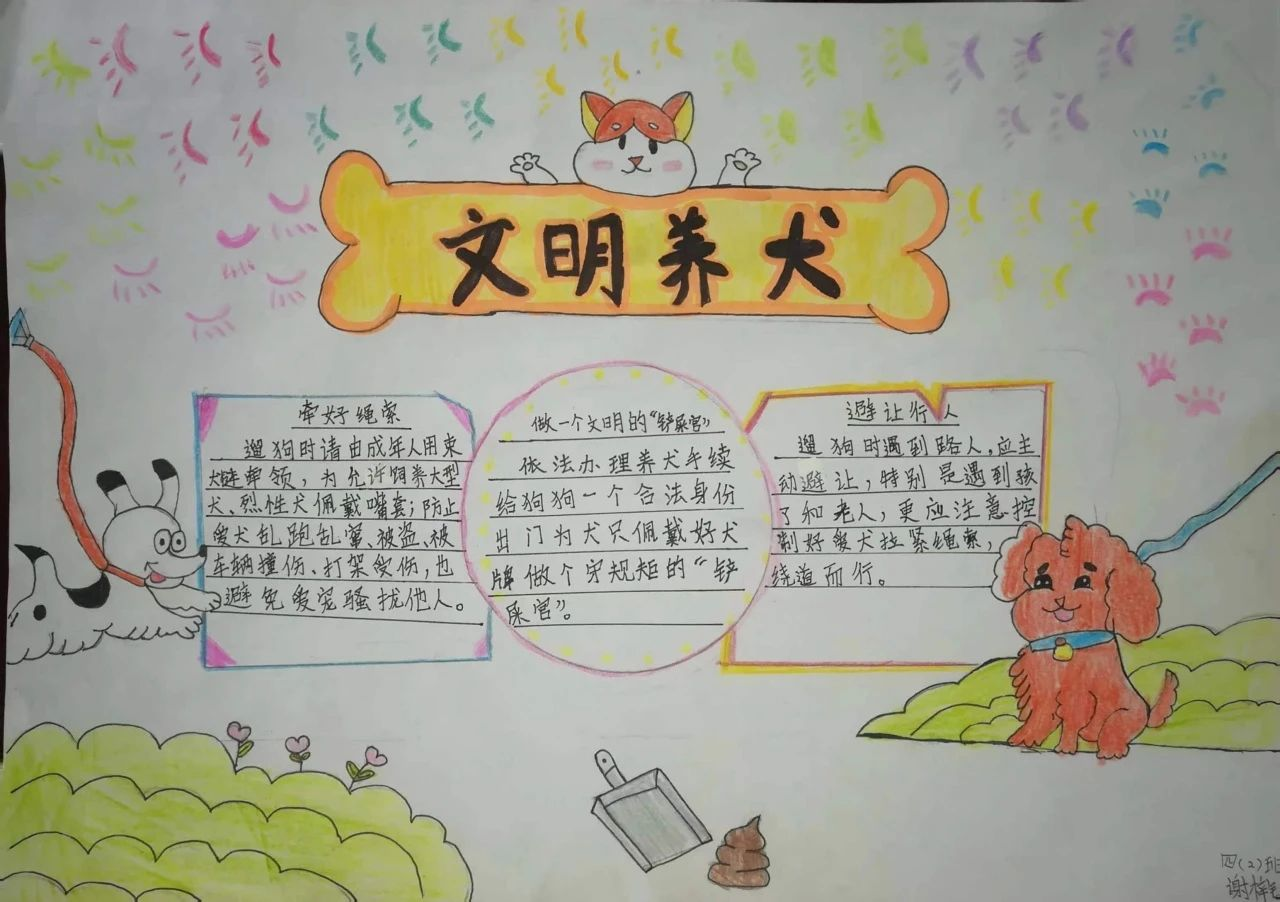 文明养犬
牵好绳索
遛狗时请由成年人用束
犬链牵领，为允许饲养大型
犬、烈性犬佩戴嘴套；防止
爱犬乱跑乱窜、被盗、被
车辆撞伤、打架受伤，也
避免爱宠骚扰他人。
做一个文明的“铲屎官”
依法办理养犬手续
给狗狗一个合法身份
出门为犬只佩戴好犬
牌做个守规矩的“铲
屎官”。
避让行人
遛狗时遇到路人，应主
动避让，特别是遇到孩
了和老人，更应注意控
制好爱犬拉紧绳索，
绕道而行。
四(2)班
谢梓